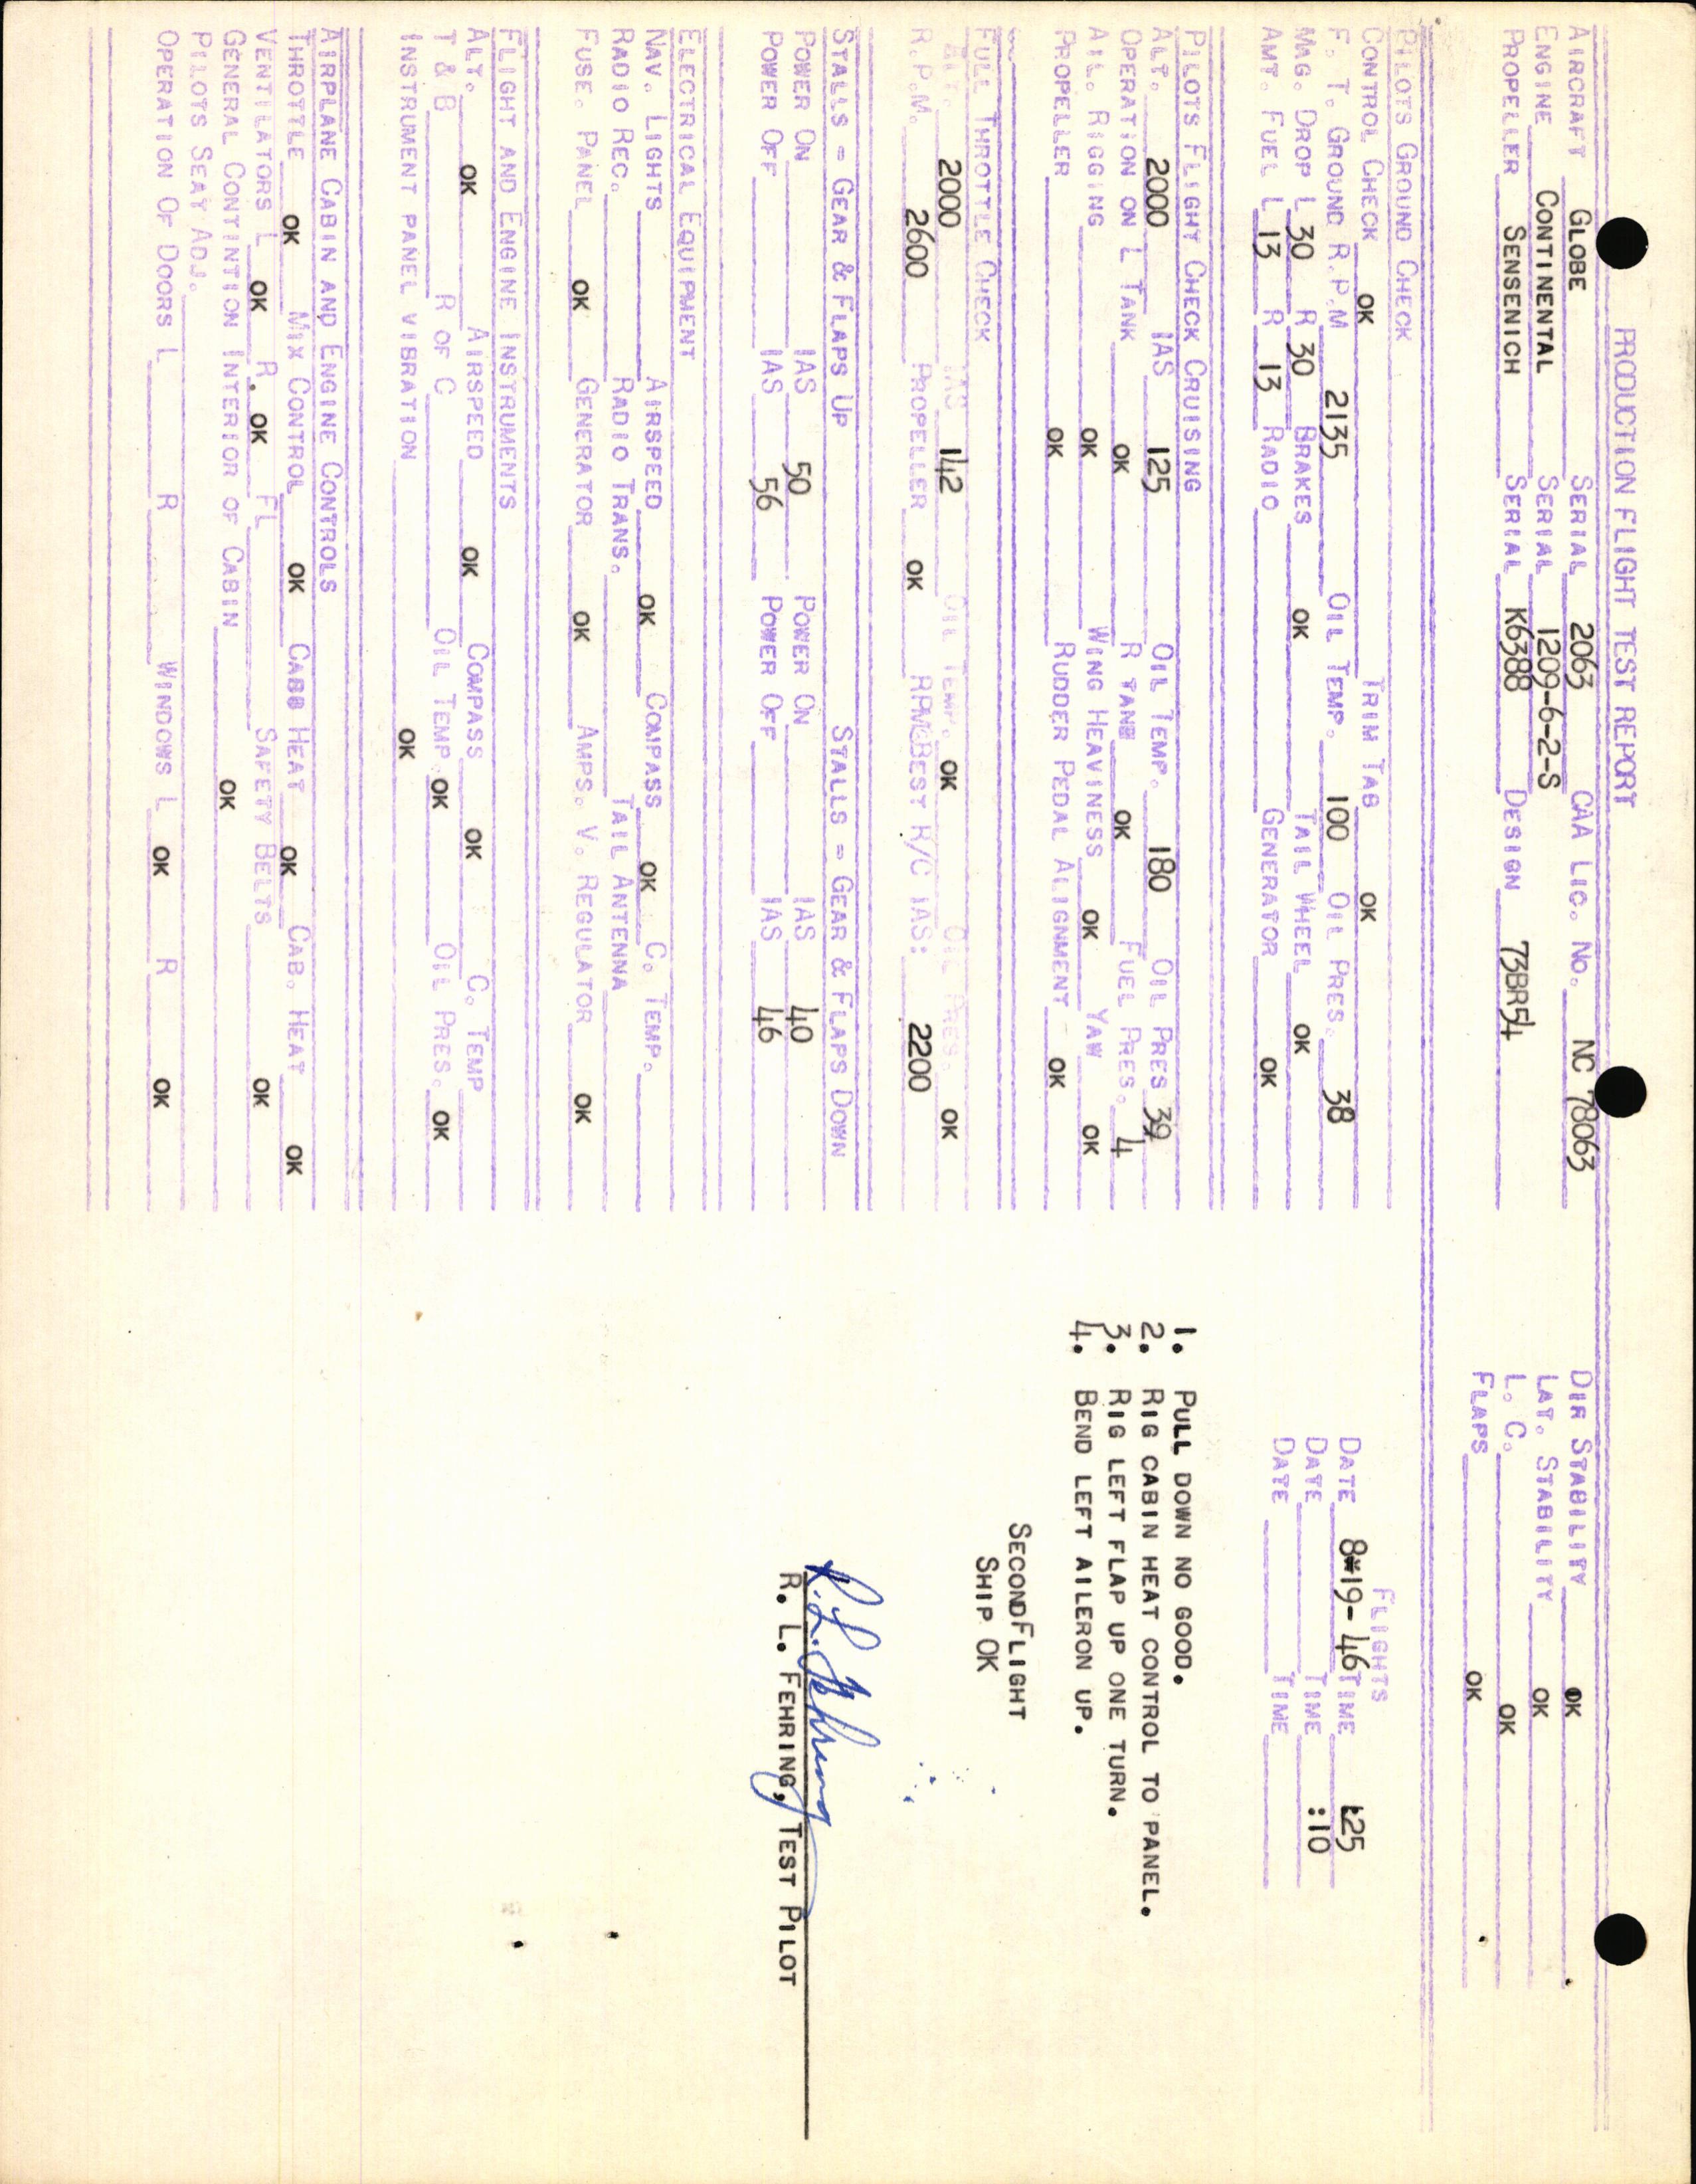 PRODUCTION FLIGHT TEST REPORT
AIRCRAFT GLOBE SERIAL 2063 CAA LIC. NO. NC 78063 DIR STABILITY OK
ENGINE CONTINENTAL SERIAL 1209-6-2-S LAT. STABILITY OK
PROPELLER SENSENICH SERIAL K6388 DESIGN 73BR54 L. C. OK
FLAPS OK
PILOTS GROUND CHECK
CONTROL CHECK OK TRIM TAB OK FLIGHTS
F. T. GROUND R.P.M 2135 OIL TEMP. 100 OIL PRES. 38 DATE 8-19-46 TIME :25
MAG. DROP L 30 R 30 BRAKES OK TAIL WHEEL OK DATE TIME :10
AMT. FUEL L 13 R 13 RADIO GENERATOR OK DATE TIME
PILOTS FLIGHT CHECK CRUISING
ALT. 2000 IAS 125 OIL TEMP. 180 OIL PRES 39
OPERATION ON L TANK OK R TANK OK FUEL PRES. 4
AIL. RIGGING OK WING HEAVINESS OK YAW OK
PROPELLER OK RUDDER PEDAL ALIGNMENT OK
1. PULL DOWN NO GOOD.
2. RIG CABIN HEAT CONTROL TO PANEL.
3. RIG LEFT FLAP UP ONE TURN.
4. BEND LEFT AILERON UP.
FULL THROTTLE CHECK
ALT. 2000 IAS 142 OIL TEMP. OK OIL PRES. OK
R.P.M. 2600 PROPELLER OK RPM@BEST R/C IAS: 2200
SECONDFLIGHT
SHIP OK
STALLS = GEAR & FLAPS UP STALLS = GEAR & FLAPS DOWN
POWER ON IAS 50 POWER ON IAS 40
POWER OFF IAS 56 POWER OFF IAS 46
R. L. Fehring
R. L. FEHRING, TEST PILOT
ELECTRICAL EQUIPMENT
NAV. LIGHTS AIRSPEED OK COMPASS OK C. TEMP.
RADIO REC. RADIO TRANS. TAIL ANTENNA
FUSE. PANEL OK GENERATOR OK AMPS. V. REGULATOR OK
FLIGHT AND ENGINE INSTRUMENTS
ALT. OK AIRSPEED OK COMPASS OK C. TEMP
T & B R OF C OIL TEMP. OK OIL PRES. OK
INSTRUMENT PANEL VIBRATION OK
AIRPLANE CABIN AND ENGINE CONTROLS
THROTTLE OK MIX CONTROL OK HEAT OK CAB. HEAT OK
VENTILATORS L OK R. OK FL SAFETY BELTS OK
GENERAL CONTINTION INTERIOR OF CABIN OK
PILOTS SEAT ADJ.
OPERATION OF DOORS L R WINDOWS L OK R OK